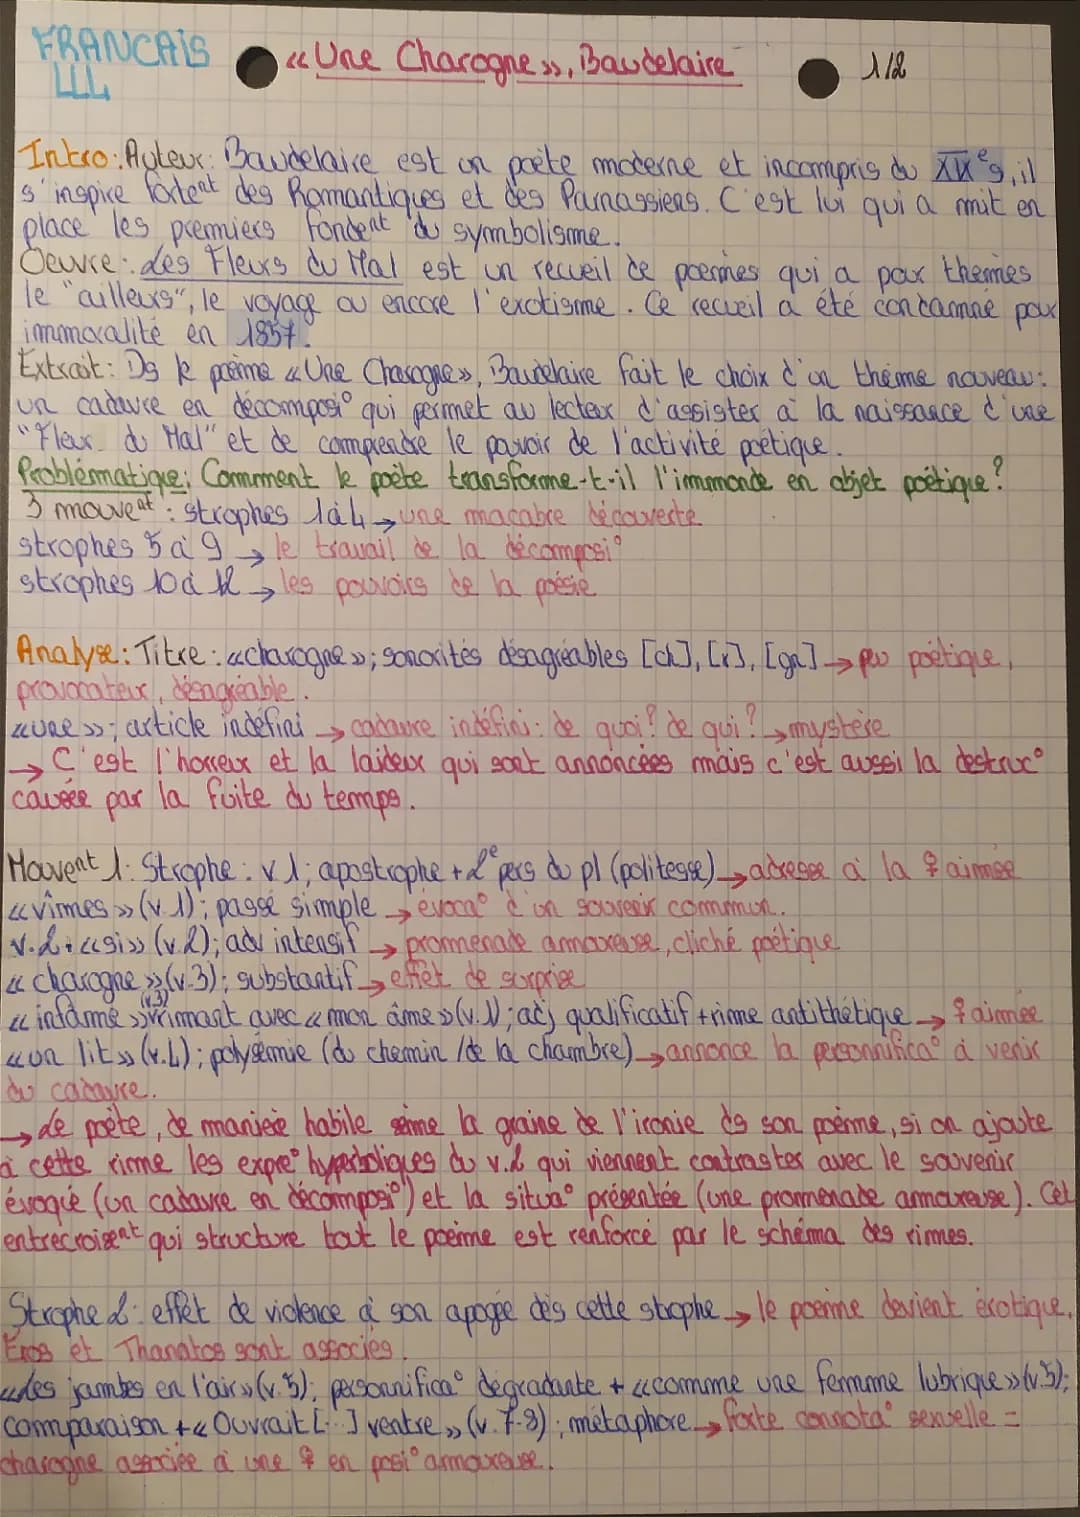 FRANCAIS
LLL
« Une Charogne », Baudelaire
1/2
Intro : Auteur : Baudelaire est un poète moderne et incompris du XIXe s, il
s'inspire fortent des Romantiques et des Parnassiens. C'est lui qui a mit en
place les premiers fondent du symbolisme.
Oeuvre : Les Fleurs du Mal est un recueil de poèmes qui a pour thèmes
le "ailleurs", le voyage ou encore l'exotisme. Ce recueil a été condamné pour
immoralité en 1857.
Extrait : Ds le poème « Une Charogne », Baudelaire fait le choix d'un thème nouveau :
un cadavre en décomposi° qui permet au lecteur d'assister à la naissance d'une
"Fleur du Mal" et de comprendre le pouvoir de l'activité poétique.
Problématique : Comment le poète transforme-t-il l'immonde en objet poétique ?
3 mouvent : strophes 1 à 4 → une macabre découverte
strophes 5 à 9 → le travail de la décomposi°
strophes 10 à 12 → les pouvoirs de la poésie
Analyse : Titre : « charogne » ; sonorités désagréables [ch], [r], [gn] → peu poétique,
provocateur, désagréable.
« une » ; article indéfini → cadavre indéfini : de quoi ? de qui ? → mystère
→ C'est l'horreur et la laideur qui sont annoncées mais c'est aussi la destruc°
causée par la fuite du temps.
Mouvent 1 : Strophe : v 1 ; apostrophe + 2e pers du pl (politesse) → adresse à la ♀ aimée
« vîmes » (v.1) ; passé simple → évoca° d'un souvenir commun.
v.2 : « si » (v.2) ; adv intensif → promenade amoureuse, cliché poétique
« charogne » (v.3) ; substantif → effet de surprise
« infâme » (v.3) rimant avec « mon âme » (v.1) ; adj qualificatif + rime antithétique → ♀ aimée
« un lit » (v.4) ; polysémie (du chemin / de la chambre) → annonce la personnifica° à venir
du cadavre.
→ Le poète, de manière habile sème la graine de l'ironie ds son poème, si on ajoute
à cette rime les expre° hyperboliques du v.2 qui viennent contraster avec le souvenir
évoqué (un cadavre en décomposi°) et la situa° présentée (une promenade amoureuse). Cet
entrecroisent qui structure tout le poème est renforcé par le schéma des rimes.
Strophe 2 : effet de violence à son apogée dès cette strophe → le poème devient érotique,
Eros et Thanatos sont associés.
« Les jambes en l'air » (v.5) ; personnifica° dégradante + « comme une femme lubrique » (v.5) ;
comparaison + « Ouvrait [...] ventre » (v.7-8) ; métaphore → forte connota° sexuelle =
charogne associée à une ♀ en posi° amoureuse.